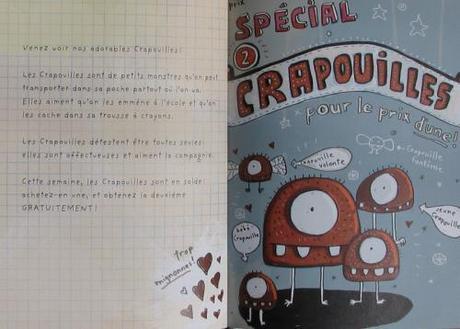 Venez voir nos adorables Crapouilles!
Les Crapouilles sont de petits monstres qu'on peut
transporter dans sa poche partout où l'on va.
Elles aiment qu'on les emmène à l'école et qu'on
les cache dans sa trousse à crayons.
Les Crapouilles détestent être toutes seules:
elles sont affectueuses et aiment la compagnie.
Cette semaine, les Crapouilles sont en solde:
achetez-en une, et obtenez la deuxième
GRATUITEMENT!
trop
mignonnes!
prix
SPÉCIAL
2
CRAPOUILLES
pour le prix d'une!
crapouille
volante
Crapouille
fantôme
bébé
Crapouille
jeune
Crapouille